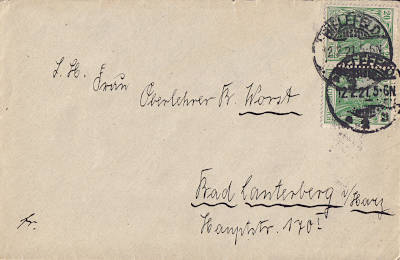 BIELEFELD
12.2.21. 5-6N.
20
BIELEFELD
12.2.21. 5-6N.
S. H. Frau
Oberlehrer R. Worst
Bad Lauterberg i/Harz
Hauptstr. 170 I
fr.